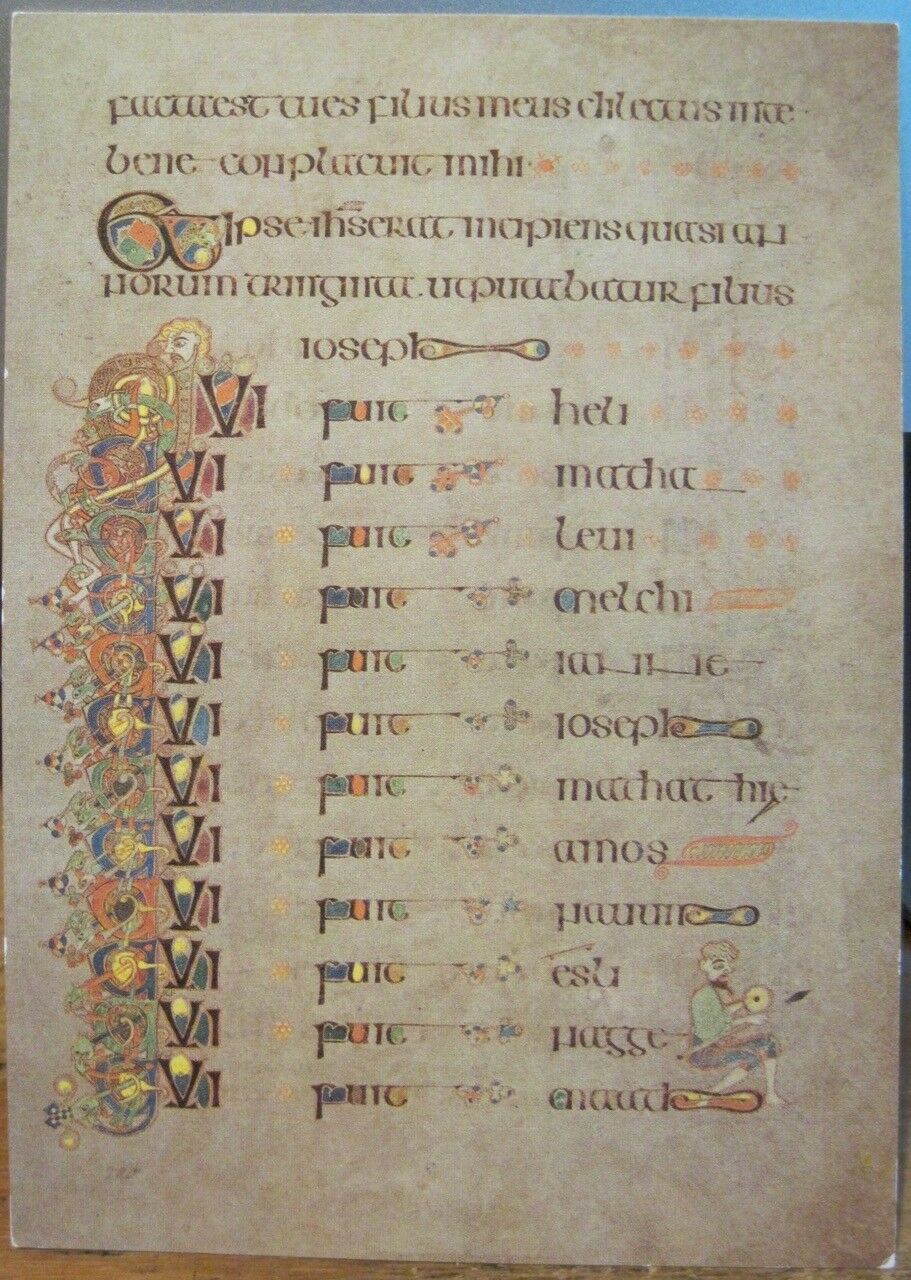 facta est tu es filius meus dilectus in te
bene conplacuit mihi
Et ipse ihs erat incipiens quasi an
norum triginta ut putabatur filius
ioseph
QVI fuit heli
QVI fuit matha
QVI fuit levi
QVI fuit melchi
QVI fuit iannae
QVI fuit ioseph
QVI fuit mathathie
QVI fuit amos
QVI fuit nauum
QVI fuit esli
QVI fuit nagge
QVI fuit maath